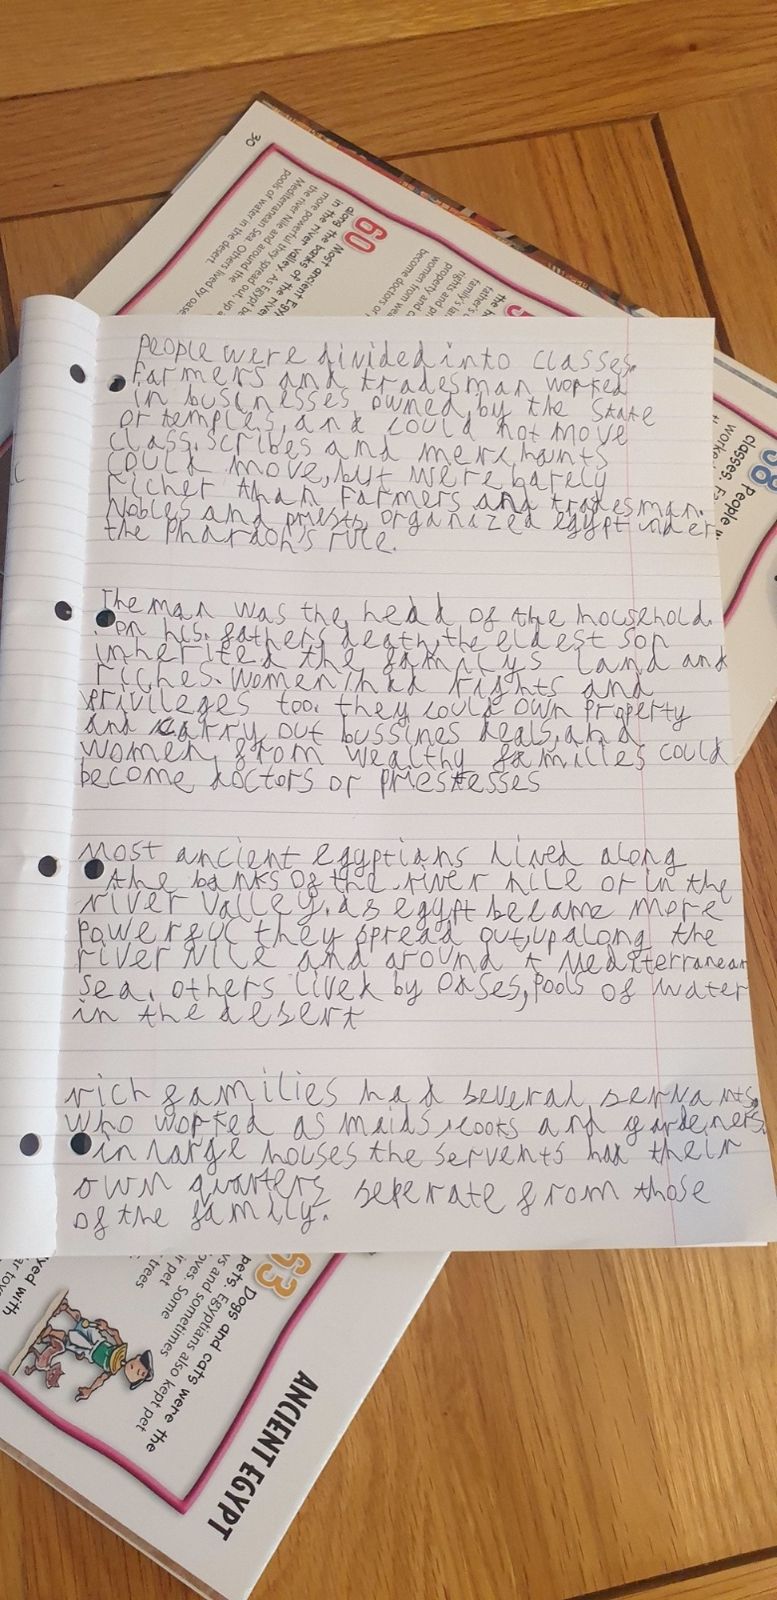 30
60
Most ancient Egy
along the banks of the river
in the river valley. As Egypt be
more powerful they spread out, up a
the river Nile and around the
Mediterranean Sea. Others lived by oase
pools of water in the desert.
the h
father's
family's lan
rights and pr
property and c
women from we
become doctors or
58 People w
classes. Fa
worke
People were divided into classes.
Farmers and tradesman worked
in businesses owned by the state
or temples, and could not move
class. scribes and merchants
could move, but were barely
richer than farmers and tradesman.
Nobles and priests organized egypt under
the Pharaoh's rule.
The man was the head of the household.
on his fathers death, the eldest son
inherited the familys land and
riches. women had rights and
privileges too. they could own property
and carry out bussines deals, and
women from wealthy families could
become doctors or priestesses
Most ancient egyptians lived along
the banks of the river nile or in the
river valley. as egypt became more
powerful they spread out, up along the
river Nile and around t Mediterranean
sea. others lived by oases, pools of water
in the desert
rich families had several servants,
who worked as maids, cooks and gardeners.
in large houses the servents had their
own quarters seperate from those
of the family.
63
Dogs and cats were the
pets. Egyptians also kept pet
ys and sometimes
oves. Some
ir pet
trees
yed with
ar toys
ANCIENT EGYPT